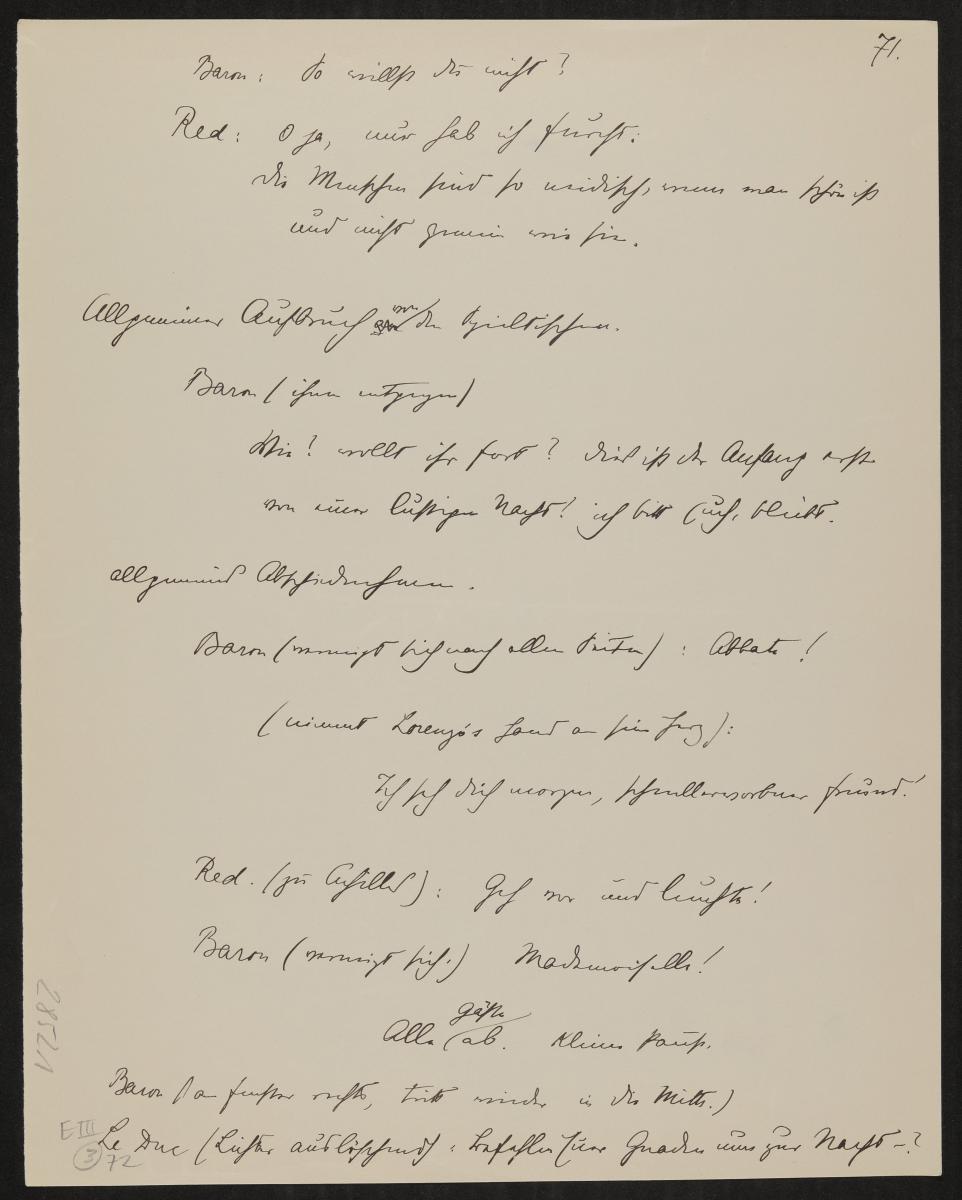 71.
Baron: So willst du nicht?
Red: O ja, nur hab ich furcht:
die Menschen sind so neidisch, wenn man schön ist
und nicht gemein wie sie.
Allgemeiner Aufbruch von den Spieltischen.
Baron (ihnen entgegen)
Wie! wollt ihr fort? dies ist der Anfang erst
von einer lustigen Nacht! ich bitt Euch, bleibt.
allgemeines Abschiednehmen.
Baron (verneigt sich nach allen Seiten): Abbate!
(nimmt Lorenzo's Hand an sein Herz):
Ich seh dich morgen, schnellerworbner freund!
Red. (zu Achilles): Geh vor und leuchte!
Baron (verneigt sich.) Mademoiselle!
Alle Gäste ab. Kleine Pause.
Baron (am fenster rechts, tritt wieder in die Mitte.)
Le Duc (Lichter auslöschend): Befehlen Euer Gnaden nun zur Nacht –?
E III
3
72
28521